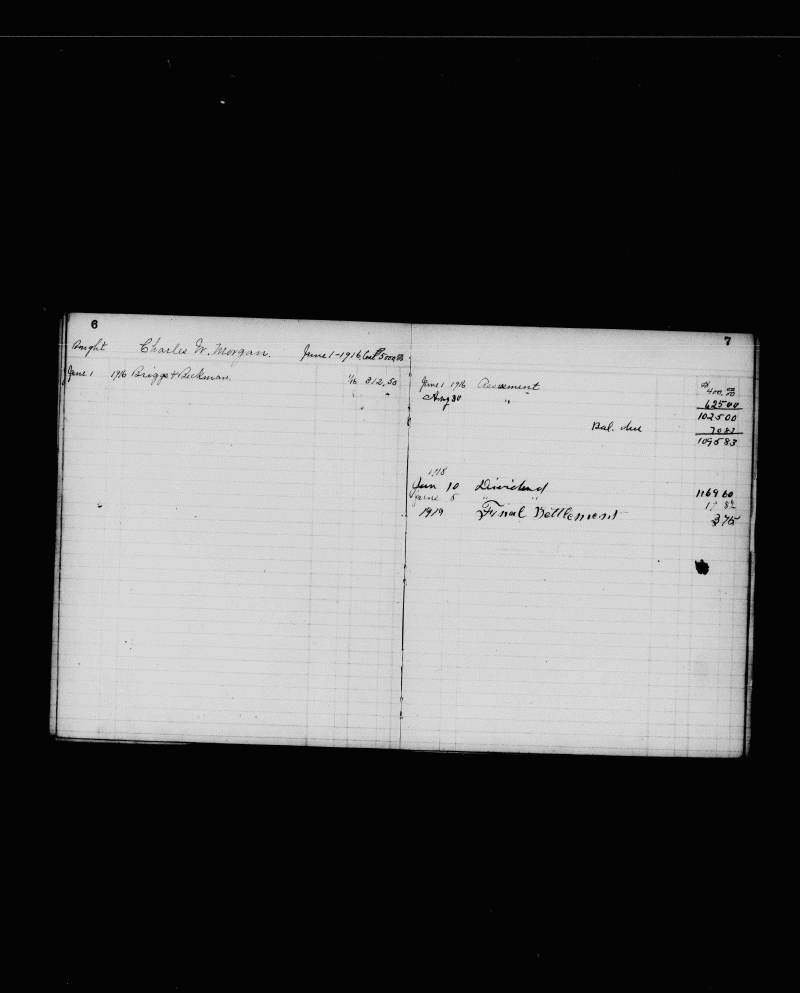 6
Bought Charles W. Morgan. June 1-1916 Cost $5000.00
June 1 1916 Briggs & Beckman. 1/16 312.50
7
June 1 1916 Assessment $400.00
Aug 30 " 625 00
1025 00
Bal. due 70 83
1095 83
1918
Jan 10 Dividend 1169 60
June 5 " "
1919 Final Settlement 3 75